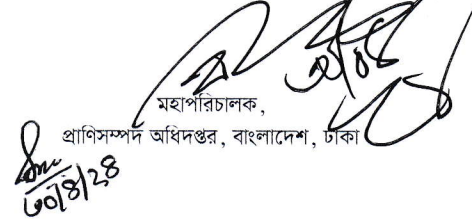 মহাপরিচালক,
প্রাণিসম্পদ অধিদপ্তর, বাংলাদেশ, ঢাকা
৩০/৪/২৪